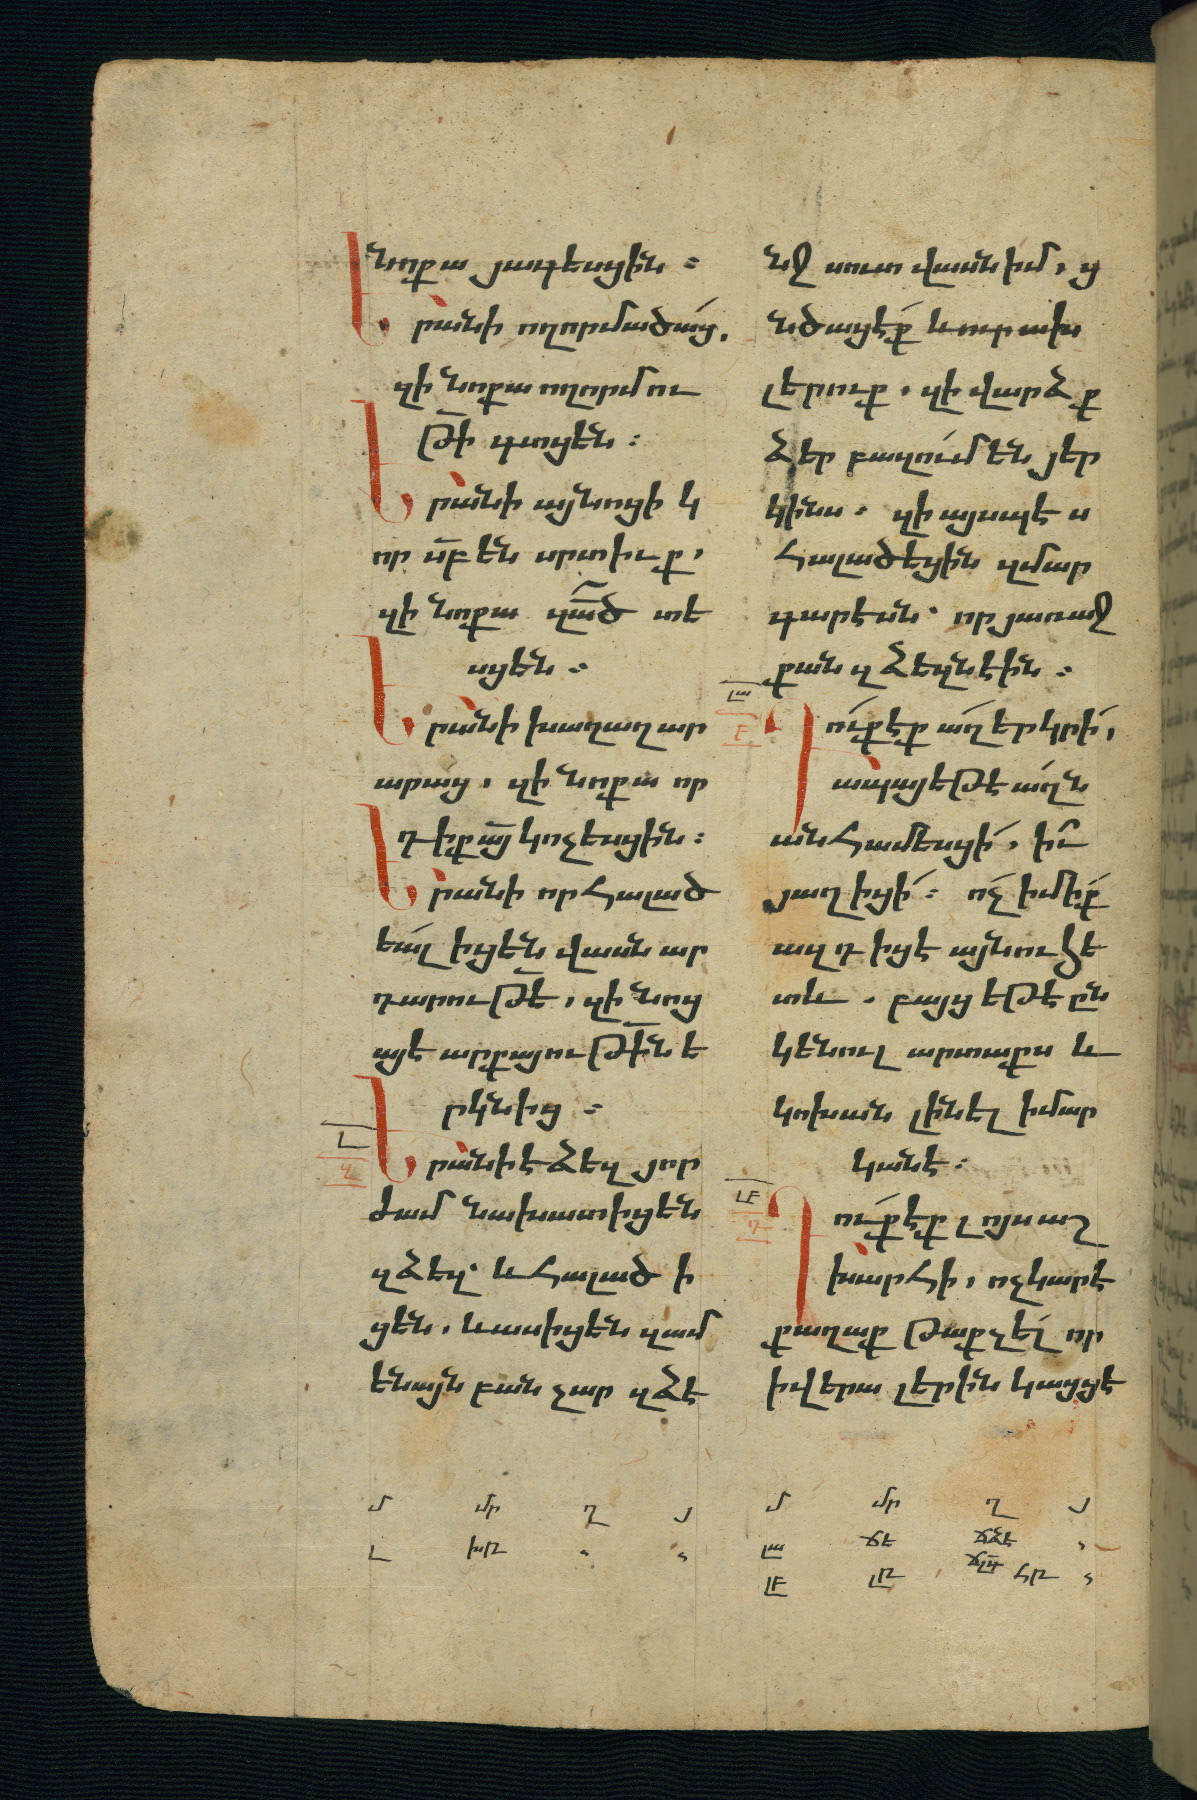 նոքա յագեսցին ։
Երանի ողորմածաց.
զի նոքա ողորմու
թի գտցեն ։
Երանի այնոցիկ
որ սբ են սրտիւք,
զի նոքա զած տե
սցեն ։
Երանի խաղաղար
արաց, զի նոքա որ
դիք այ կոչեսցին ։
Երանի որ հալած
եալ իցեն վասն ար
դարութե, զի նոց
ա յէ արքայութին ե
րկնից ։
Լ
Զ
Երանի է ձեզ յոր
ժամ նախատիցեն
զձեզ՝ և հալած ի
ցեն, և ասիցեն զամ
ենայն բան չար զձէ
նջ սուտ վասն իմ, ց
նծացէք և ուրախ
լերուք, զի վարձք
ձեր բազում են յեր
կինս ։ զի այսպէս
հալածեցին զմար
գարէսն՝ որ յառաջ
քան զձեզն էին ։
ԼԱ
Բ
Դուք էք աղ երկրի,
ապա եթէ աղն
անհամեսցի, իւ
յաղիցի ։ ոչ իմիք
ազդիցէ այնուհե
տև . բայց եթէ ըն
կենուլ արտաքս և
կոխան լինել իմար
կանէ ։
ԼԲ
Դուք էք լոյս աշ
խարհի, ոչ կարէ
քաղաք թաքչել որ
ի վերա լերին կայցէ
մ մր ղ յ
Լ խը
մ մր ղ յ
ԼԱ ճե ճձե
ԼԲ լը հը